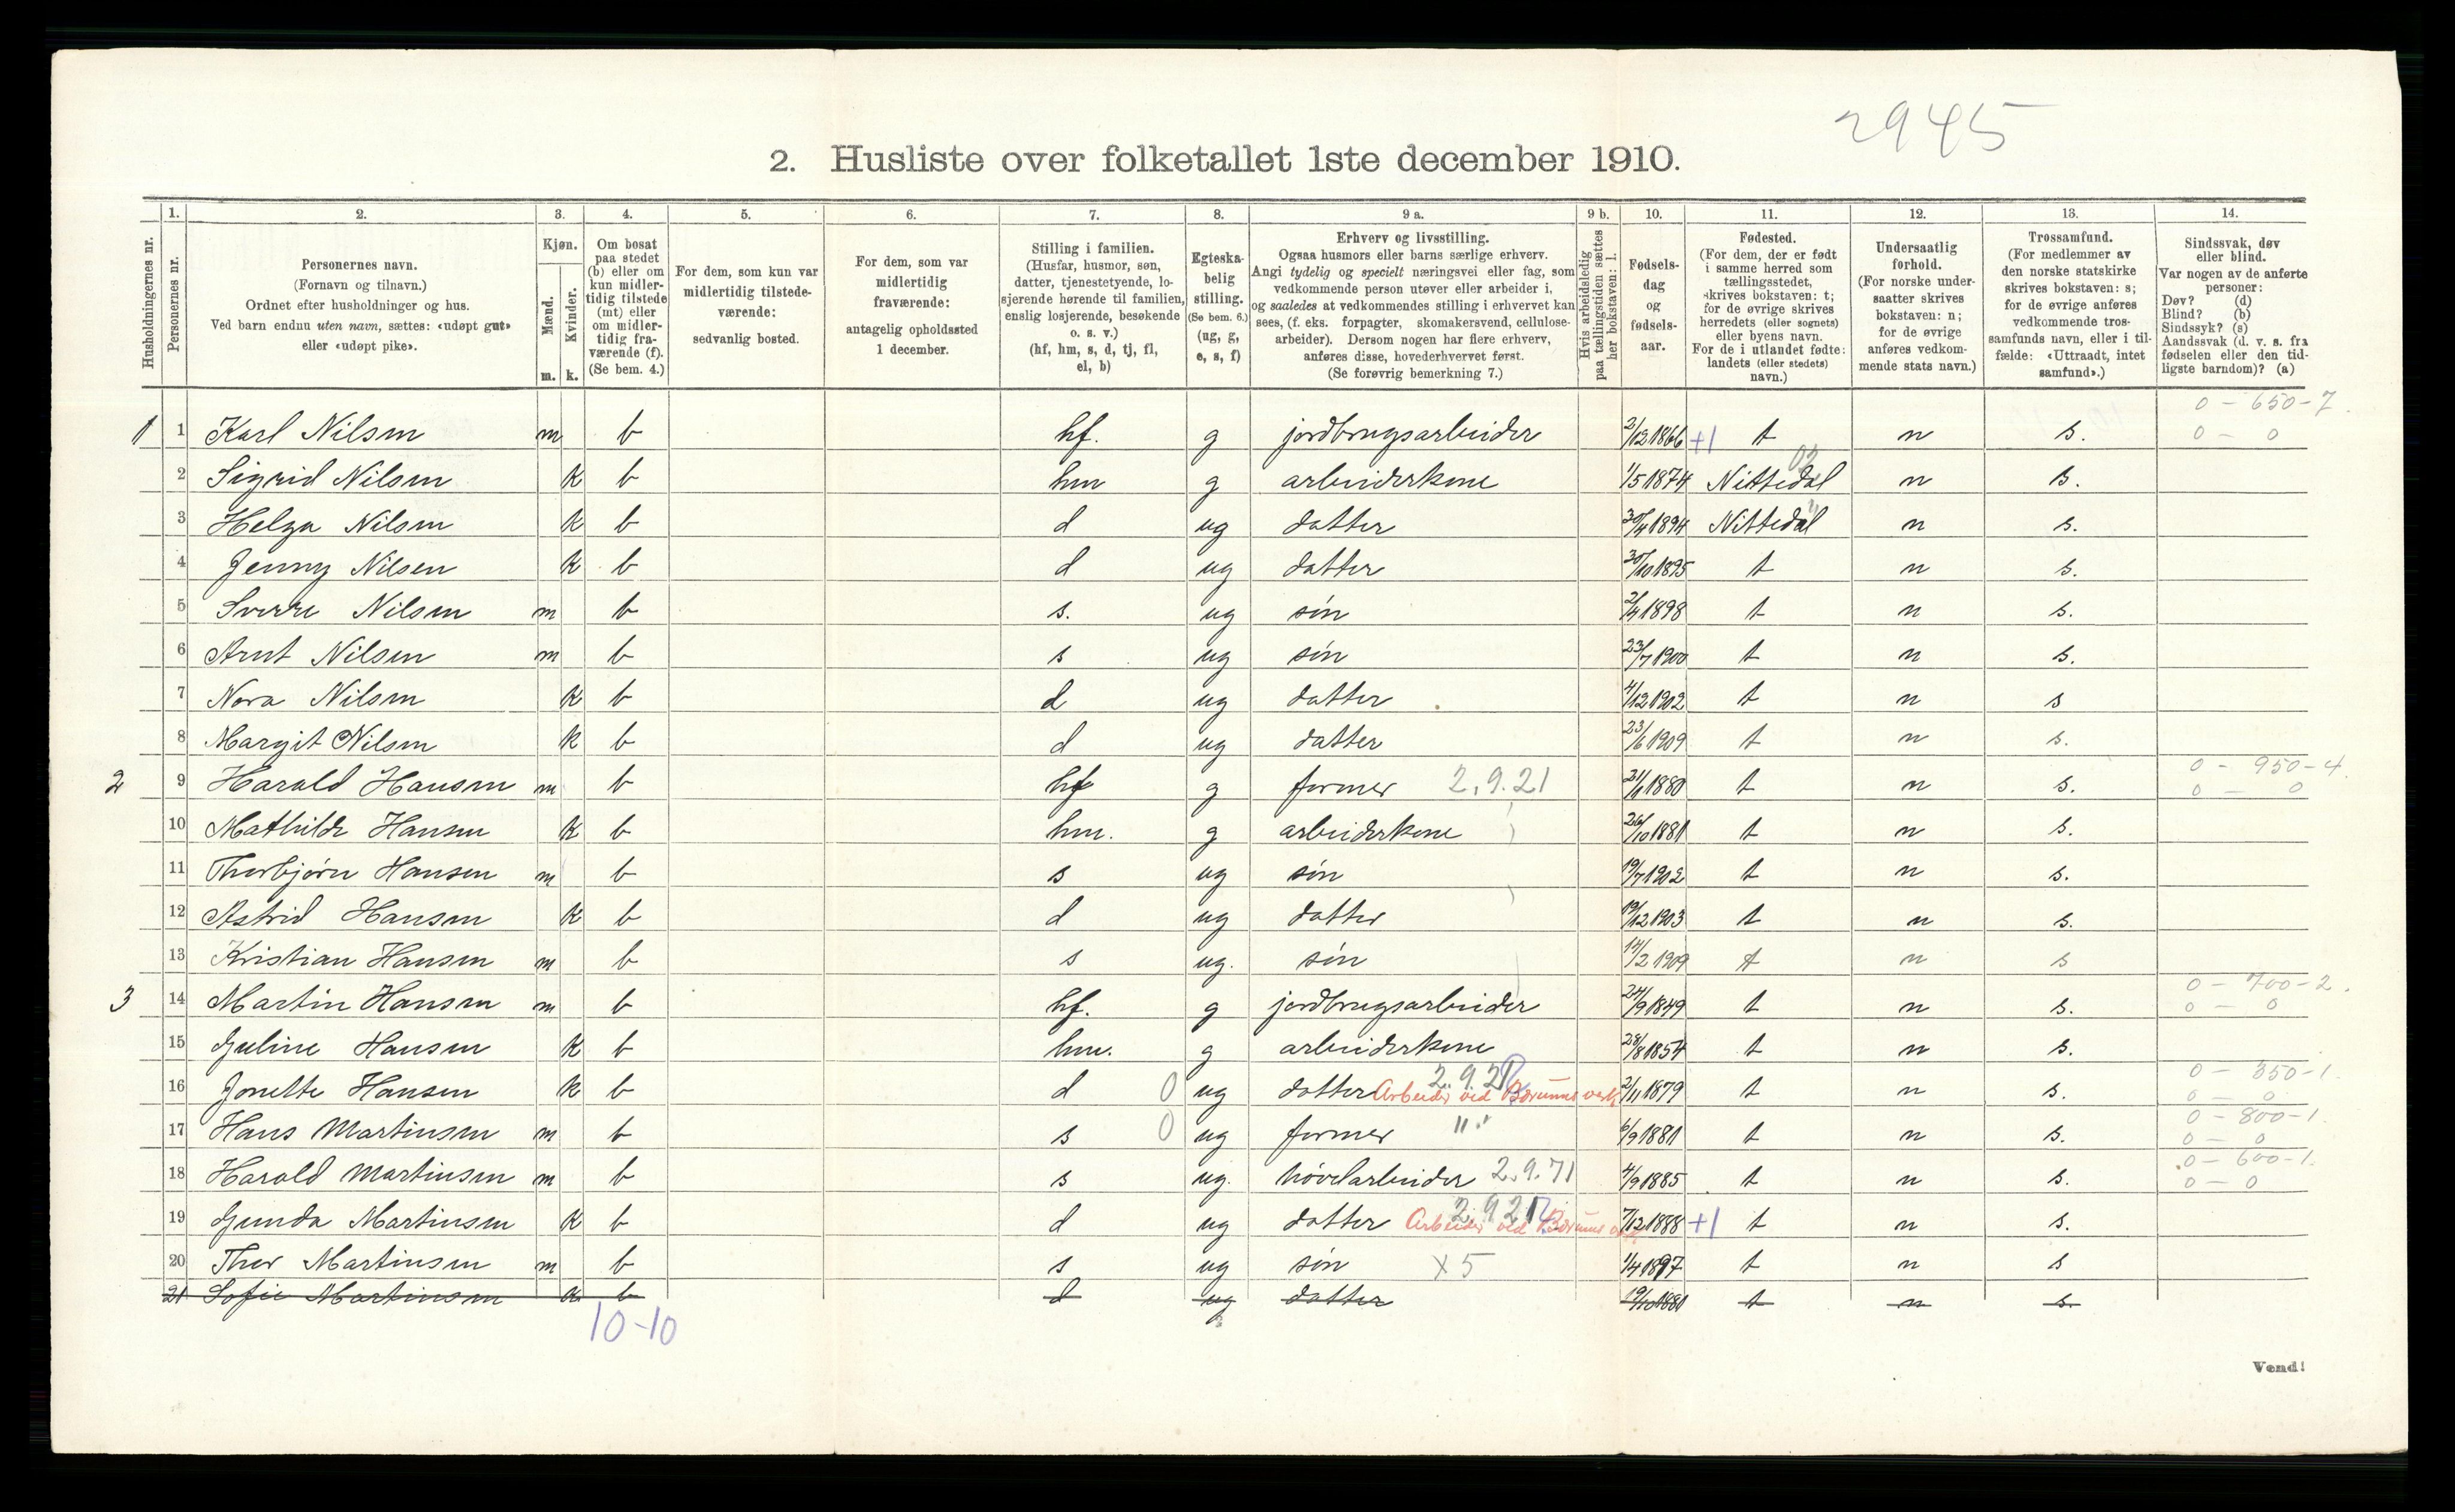 2945
2. Husliste over folketallet 1ste december 1910.
Husholdningernes nr.
1. Personernes nr.
2. Personernes navn. (Fornavn og tilnavn.) Ordnet efter husholdninger og hus. Ved barn endnu uten navn, sættes: «udøpt gut» eller «udøpt pike».
3. Kjøn. Mænd. m. Kvinder. k.
4. Om bosat paa stedet (b) eller om kun midlertidig tilstede (mt) eller om midlertidig fraværende (f). (Se bem. 4.)
5. For dem, som kun var midlertidig tilstedeværende: sedvanlig bosted.
6. For dem, som var midlertidig fraværende: antagelig opholdssted 1 december.
7. Stilling i familien. (Husfar, husmor, søn, datter, tjenestetyende, losjerende hørende til familien, enslig losjerende, besøkende o. s. v.) (hf, hm, s, d, tj, fl, el, b)
8. Egteskabelig stilling. (Se bem. 6.) (ug, g, e, s, f)
9 a. Erhverv og livsstilling. Ogsaa husmors eller barns særlige erhverv. Angi tydelig og specielt næringsvei eller fag, som vedkommende person utøver eller arbeider i, og saaledes at vedkommendes stilling i erhvervet kan sees, (f. eks. forpagter, skomakersvend, cellulosearbeider). Dersom nogen har flere erhverv, anføres disse, hovederhvervet først. (Se forøvrig bemerkning 7.)
9 b. Hvis arbeidsledig paa tællingstiden sættes her bokstaven: l.
10. Fødselsdag og fødselsaar.
11. Fødested. (For dem, der er født i samme herred som tællingsstedet, skrives bokstaven: t; for de øvrige skrives herredets (eller sognets) eller byens navn. For de i utlandet fødte: landets (eller stedets) navn.)
12. Undersaatlig forhold. (For norske undersaatter skrives bokstaven: n; for de øvrige anføres vedkommende stats navn.)
13. Trossamfund. (For medlemmer av den norske statskirke skrives bokstaven: s; for de øvrige anføres vedkommende trossamfunds navn, eller i tilfælde: «Uttraadt, intet samfund».)
14. Sindssvak, døv eller blind. Var nogen av de anførte personer: Døv? (d) Blind? (b) Sindssyk? (s) Aandssvak (d. v. s. fra fødselen eller den tidligste barndom)? (a)
0 - 650 - 7.
1 1 Karl Nilsen m b hf. g jordbrugsarbeider 2/12 1866 +1 t n s. 0 - 0
2 Sigrid Nilsen k b hm g arbeiderkone 1/5 1874 Nittedal n s.
3 Helga Nilsen k b d ug datter 30/4 1894 Nittedal n s.
4 Jenny Nilsen k b d ug datter 30/10 1895 t n s.
5 Sverre Nilsen m b s. ug søn 2/4 1898 t n s.
6 Arnt Nilsen m b s ug søn 23/7 1900 t n s.
7 Nora Nilsen k b d ug datter 4/12 1902 t n s
8 Margit Nilsen k b d ug datter 23/6 1909 t n s.
0 - 950 - 4.
2 9 Harald Hansen m b hf g former 2.9.21 21/1 1880 t n s. 0 - 0
10 Mathilde Hansen k b hm. g arbeiderkone 26/10 1881 t n s.
11 Thorbjørn Hansen m b s ug søn 19/7 1902 t n s.
12 Astrid Hansen k b d ug datter 19/12 1903 t n s.
13 Kristian Hansen m b s ug. søn 14/2 1909 t n s
0 - 700 - 2.
3 14 Martin Hansen m b hf. g jordbrugsarbeider 24/9 1849 t n s. 0 - 0
15 Juline Hansen k b hm. g arbeiderkone 28/8 1854 t n s.
2.9.21 0 - 350 - 1.
16 Jonette Hansen k b d 0 ug datter Arbeider ved Bærums verk 2/11 1879 t n s. 0 - 0
0 - 800 - 1.
17 Hans Martinsen m b s 0 ug former "." 6/9 1881 t n s. 0 - 0
0 - 600 - 1.
18 Harald Martinsen m b s ug. høvelarbeider 2.9.71 4/9 1885 t n s. 0 - 0
2.9.21
19 Gunda Martinsen k b d ug datter Arbeider ved Bærums 7/12 1888 +1 t n s.
20 Thor Martinsen m b s ug søn x5 1/4 1897 t n s
21 Sofie Martinsen k b d ug datter 19/10 1881 t n s.
10-10
Vend!